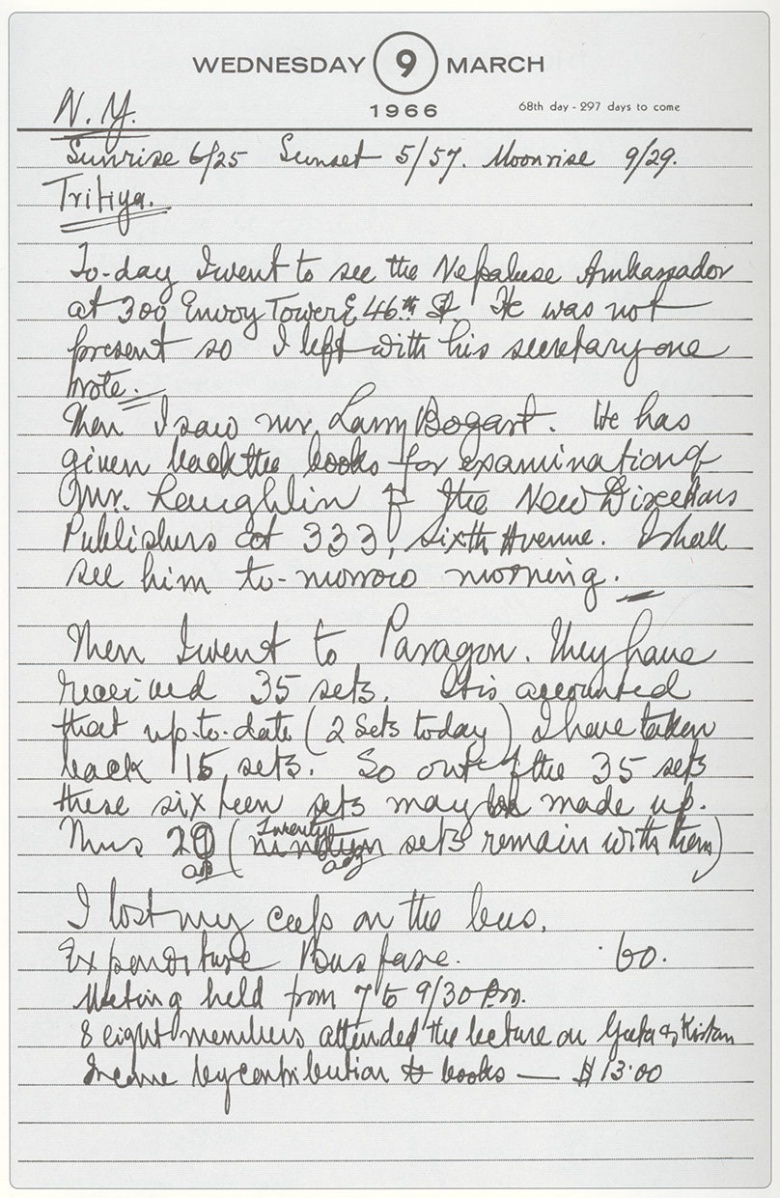 WEDNESDAY 9 MARCH
1966 68th day - 297 days to come
N. Y.
Sunrise 6/25 Sunset 5/57. Moonrise 9/29.
Tritiya.
To-day I went to see the Nepalese Ambassador
at 300 Envoy Tower E 46th St. He was not
present so I left with his secretary one
note.
Then I saw mr. Larry Bogart. He has
given back the books for examination of
Mr. Laughlin of the New Directions
Publishers at 333, Sixth Avenue. I shall
see him to-morrow morning.
Then I went to Paragon. They have
received 35 sets. It is accounted
that up-to-date (2 sets today) I have taken
back 15 sets. So out of the 35 sets
these sixteen sets may be made up.
Thus 20 (Twenty sets remain with them)
I lost my cap on the bus.
Expenditure Bus fare. .60.
Meeting held from 7 to 9/30 P.m.
8 eight members attended the lecture on Geeta & Kirtan
Income by contribution & books — $ 13.00